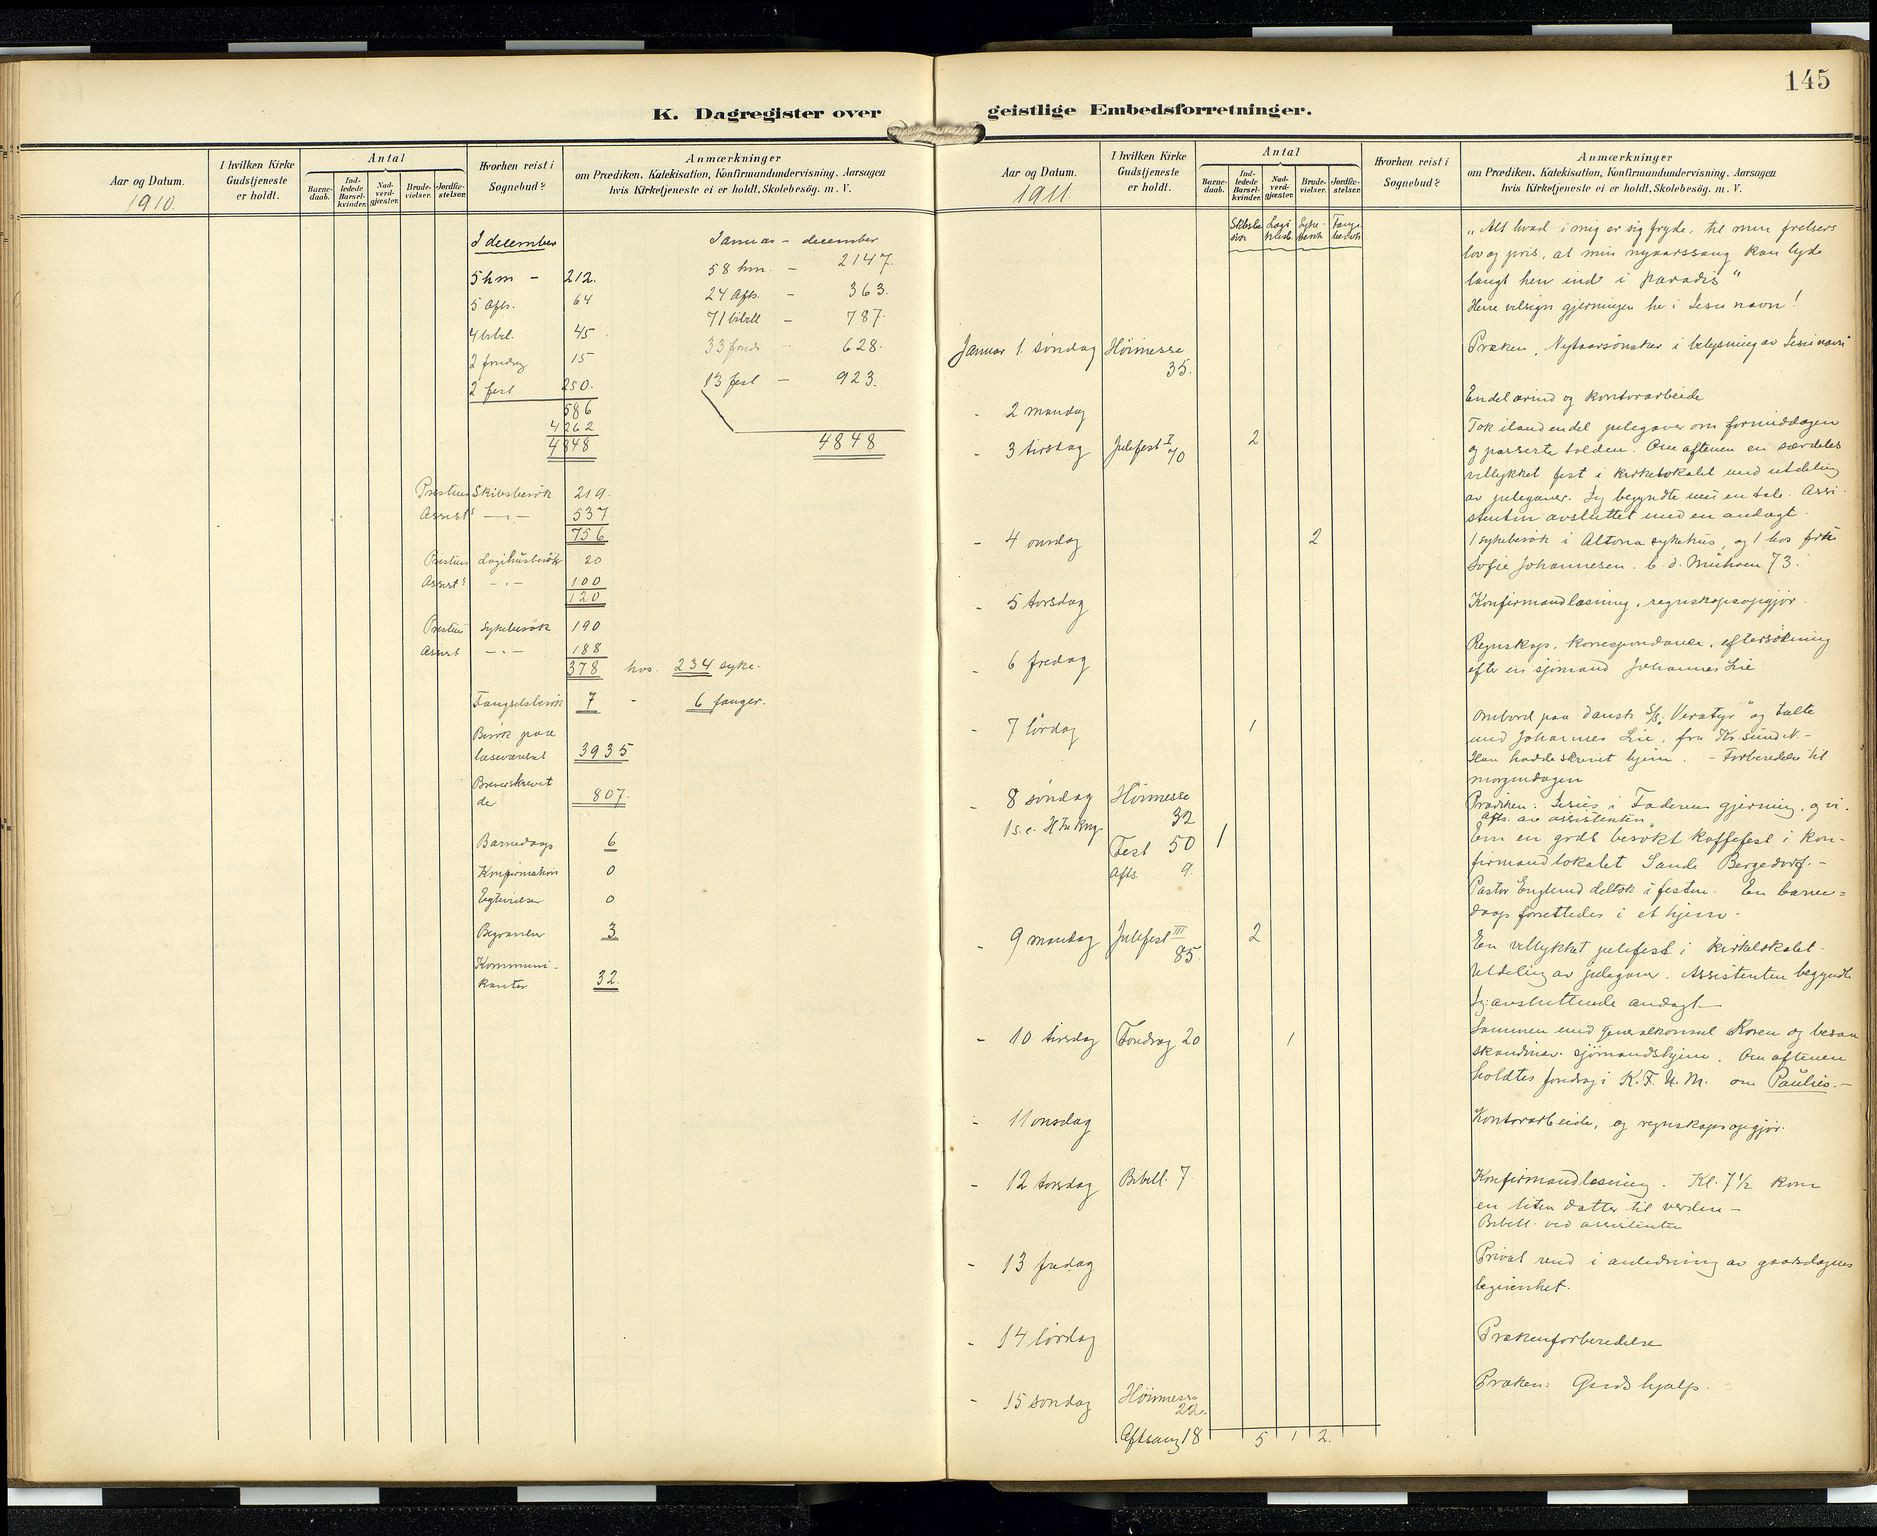 145
K. Dagregister over geistlige Embedsforretninger.
Aar og Datum.
1910.
I hvilken Kirke
Gudstjeneste
er holdt.
Antal
Barne-
daab.
Ind-
ledede
Barsel-
kvinder.
Nad-
verd-
gjæster.
Brude-
vielser.
Jordfæ-
stelser.
Hvorhen reist i
Sognebud?
Anmærkninger
om Prædiken, Katekisation, Konfirmandundervisning, Aarsagen
hvis Kirketjeneste ei er holdt, Skolebesög. m. V.
I december
5 hm - 212.
5 Afts. 64
4 bibel. 45
2 foredrag 15
2 fest 250.
586
4262
4848
Januar - december
58 hm. - 2147.
24 Afts. - 363.
71 bibell - 787.
33 foredr - 628.
13 fest - 923.
4848
Prestens Skibsbesøk 219.
Assist's - " - 537
756
Prestens Logihusbesøk 20
Assist's - " - 100
120
Prestens Sykebesøk 190
Assist - " - 188
378 hos 234 syke.
Fængselsbesøk 7 - 6 fanger.
Besøk paa
læseværelset 3935
Breve skrevet
de 807.
Barnedaap 6
Konfirmation 0
Egtevielser 0
Begravelser 3
Kommuni-
kanter 32.
Aar og Datum.
1911.
I hvilken Kirke
Gudstjeneste
er holdt.
Antal
Barne-
daab.
Ind-
ledede
Barsel-
kvinder.
Nad-
verd-
gjæster.
Brude-
vielser.
Jordfæ-
stelser.
Hvorhen reist i
Sognebud?
Anmærkninger
om Prædiken, Katekisation, Konfirmandundervisning, Aarsagen
hvis Kirketjeneste ei er holdt, Skolebesög. m. V.
"Alt hvad i mig er sig fryde, til min frelsers
lov og pris, at min nyaarssang kan lyde
langt hen ind i paradis"
Herre velsign gjerningen her i Jesu navn!
Januar 1. søndag Høimesse 35. Præken "Nytaarsønsker i belysning av Jesu navn"
- 2 mandag Endel ærind og kontorarbeide
- 3 tirsdag Julefest I 70 2 Tok iland endel julegaver om formiddagen
og passerte tolden. Om aftenen en særdeles
vellykket fest i kirkelokalet med utdeling
av julegaver. Jeg begyndte med en tale. Assi-
stenten avsluttet med en andagt.
- 4 onsdag 2 1 sykebesøk i Altona sykehus, og 1 hos frk
Sofie Johannesen. b. d. Mühren 73.
- 5 torsdag Konfirmandlæsning, regnskapsopgjør.
- 6 fredag Regnskap, korrespondance, eftersøkning
efter en sjømand Johannes Lie
- 7 lørdag 1 Ombord paa dansk S/S. "Veratyr" og talte
med Johannes Lie, fra Kr.sund N. -
Han hadde skrevet hjem. - Forberedelse til
morgendagen
- 8 søndag Høimesse 32 Prædiken: Jesus i Faderens gjerning, og vi.
1 s. e. H tre kng. Afts. av assistenten
Fest 50 1
Afts 9.
Em en godt besøkt kaffefest i kon-
firmandlokalet Sande Bergedorf. -
Pastor Englund deltok i festen. En barne-
daap forrettedes i et hjem.
- 9 mandag Julefest III 85. 2 En vellykket julefest i kirkelokalet.
Utdeling av julegaver. Assistenten begyndte
Jeg: avsluttende andagt
- 10 tirsdag Foredrag 20 1 Sammen med generalkonsul Koren og besaa
skandinav. sjømandshjem. Om aftenen
holdtes foredrag i K. F. U. M. om Paulus. -
- 11 onsdag Kontorarbeide, og regnskapsopgjør.
- 12 torsdag Bibell. 7 Konfirmandlæsning. Kl. 7 1/2 kom
en liten datter til verden -
Bibell. ved assistenten
- 13 fredag Privat ærend i anledning av gaarsdagens
begivenhet.
- 14 lørdag Prækenforberedelse
- 15 søndag Høimesse 22. Præken: Guds hjælp.
Aftsang 18 5 1 2.